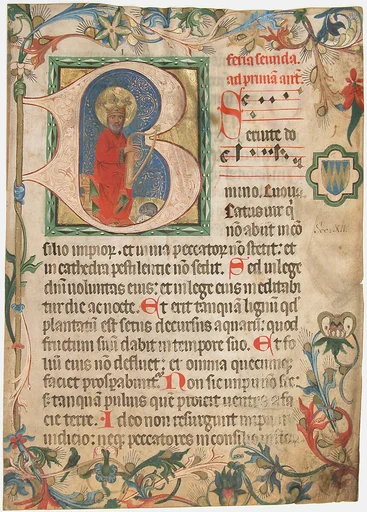 feria secunda.
ad primā ant̄.
Seruite do
mino. Euoua.
Beatus vir q̄
nō abijt in cō
silio impior̄. et in via peccator̄ nō stetit: et
in cathedra pestilentie nō sedit. Sed in lege
dn̄i voluntas eius: et in lege eius meditabi
tur die ac nocte. Et erit tanquā lignū qd̄
plantatū est secus decursus aquarū: quod
fructum suū dabit in tempore suo. Et fo
liū eius nō defluet: et omnia quecunq;
faciet prosperabunt᷑. Non sic impij nō sic:
s; tanquā puluis quē proicit ventus a fa
cie terre. Ideo non resurgunt impij in
iudicio: neq; peccatores in consilio